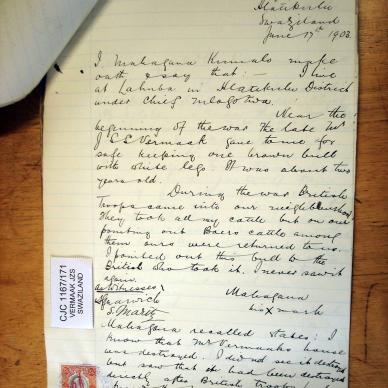 Hlatikulu
Swaziland
June 17th 1903.
I Mahagana Kumalo make
oath & say that:– I live
at Lahuba in Hlatikulu District
under chief Mlogotwa.
Near the
beginning of the war the late Mr
J S S Vermaak gave to me for
safe keeping one brown bull
with white legs. It was about two
years old.
During the war British
Troops came into our neighbourhood.
They took all my cattle but on our
pointing out Boers cattle among
them ours were returned to us.
I pointed out this bull to the
British who took it. I never saw it
again.
As Witnesses
Mahagana
his X mark
S. Maritz
Mahagana recalled states: I
know that Mr Vermaaks house
was destroyed. I did not see it destroyed
but saw that it had been destroyed
directly after British troops
CJC 1167/171
VERMAAK JZS
SWAZILAND